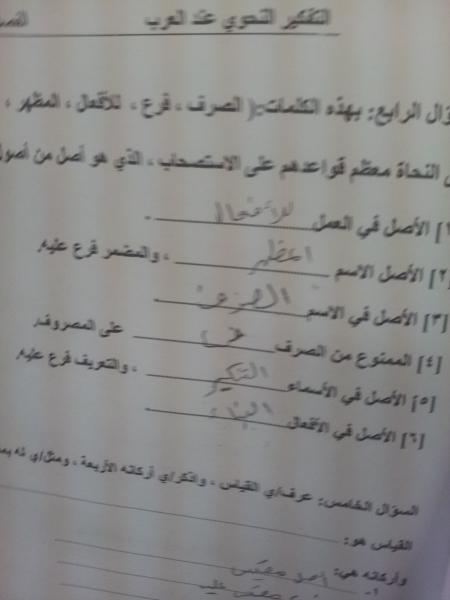 التفكير النحوي عند العرب
الرابع: بهذه الكلمات:( الصرف ، فرع ، للأفعال ، المظهر ،
النحاة معظم قواعدهم على الاستصحاب ، الذي هو أصل من أصول
الأصل في العمل للأفعال .
[٢] الأصل الاسم المظهر ، والمضمر فرع عليه.
[٣] الأصل في الاسم الصرف
[٤] الممنوع من الصرف فرع على المصروف.
[٥] الأصل في الأسماء التنكير ، والتعريف فرع عليه.
[٦] الأصل في الأفعال البناء
السؤال الخامس: عرف/ي القياس ، واذكر/ي أركانه الأربعة ، ومثل/ي له
القياس هو:
وأركانه هي:
١-